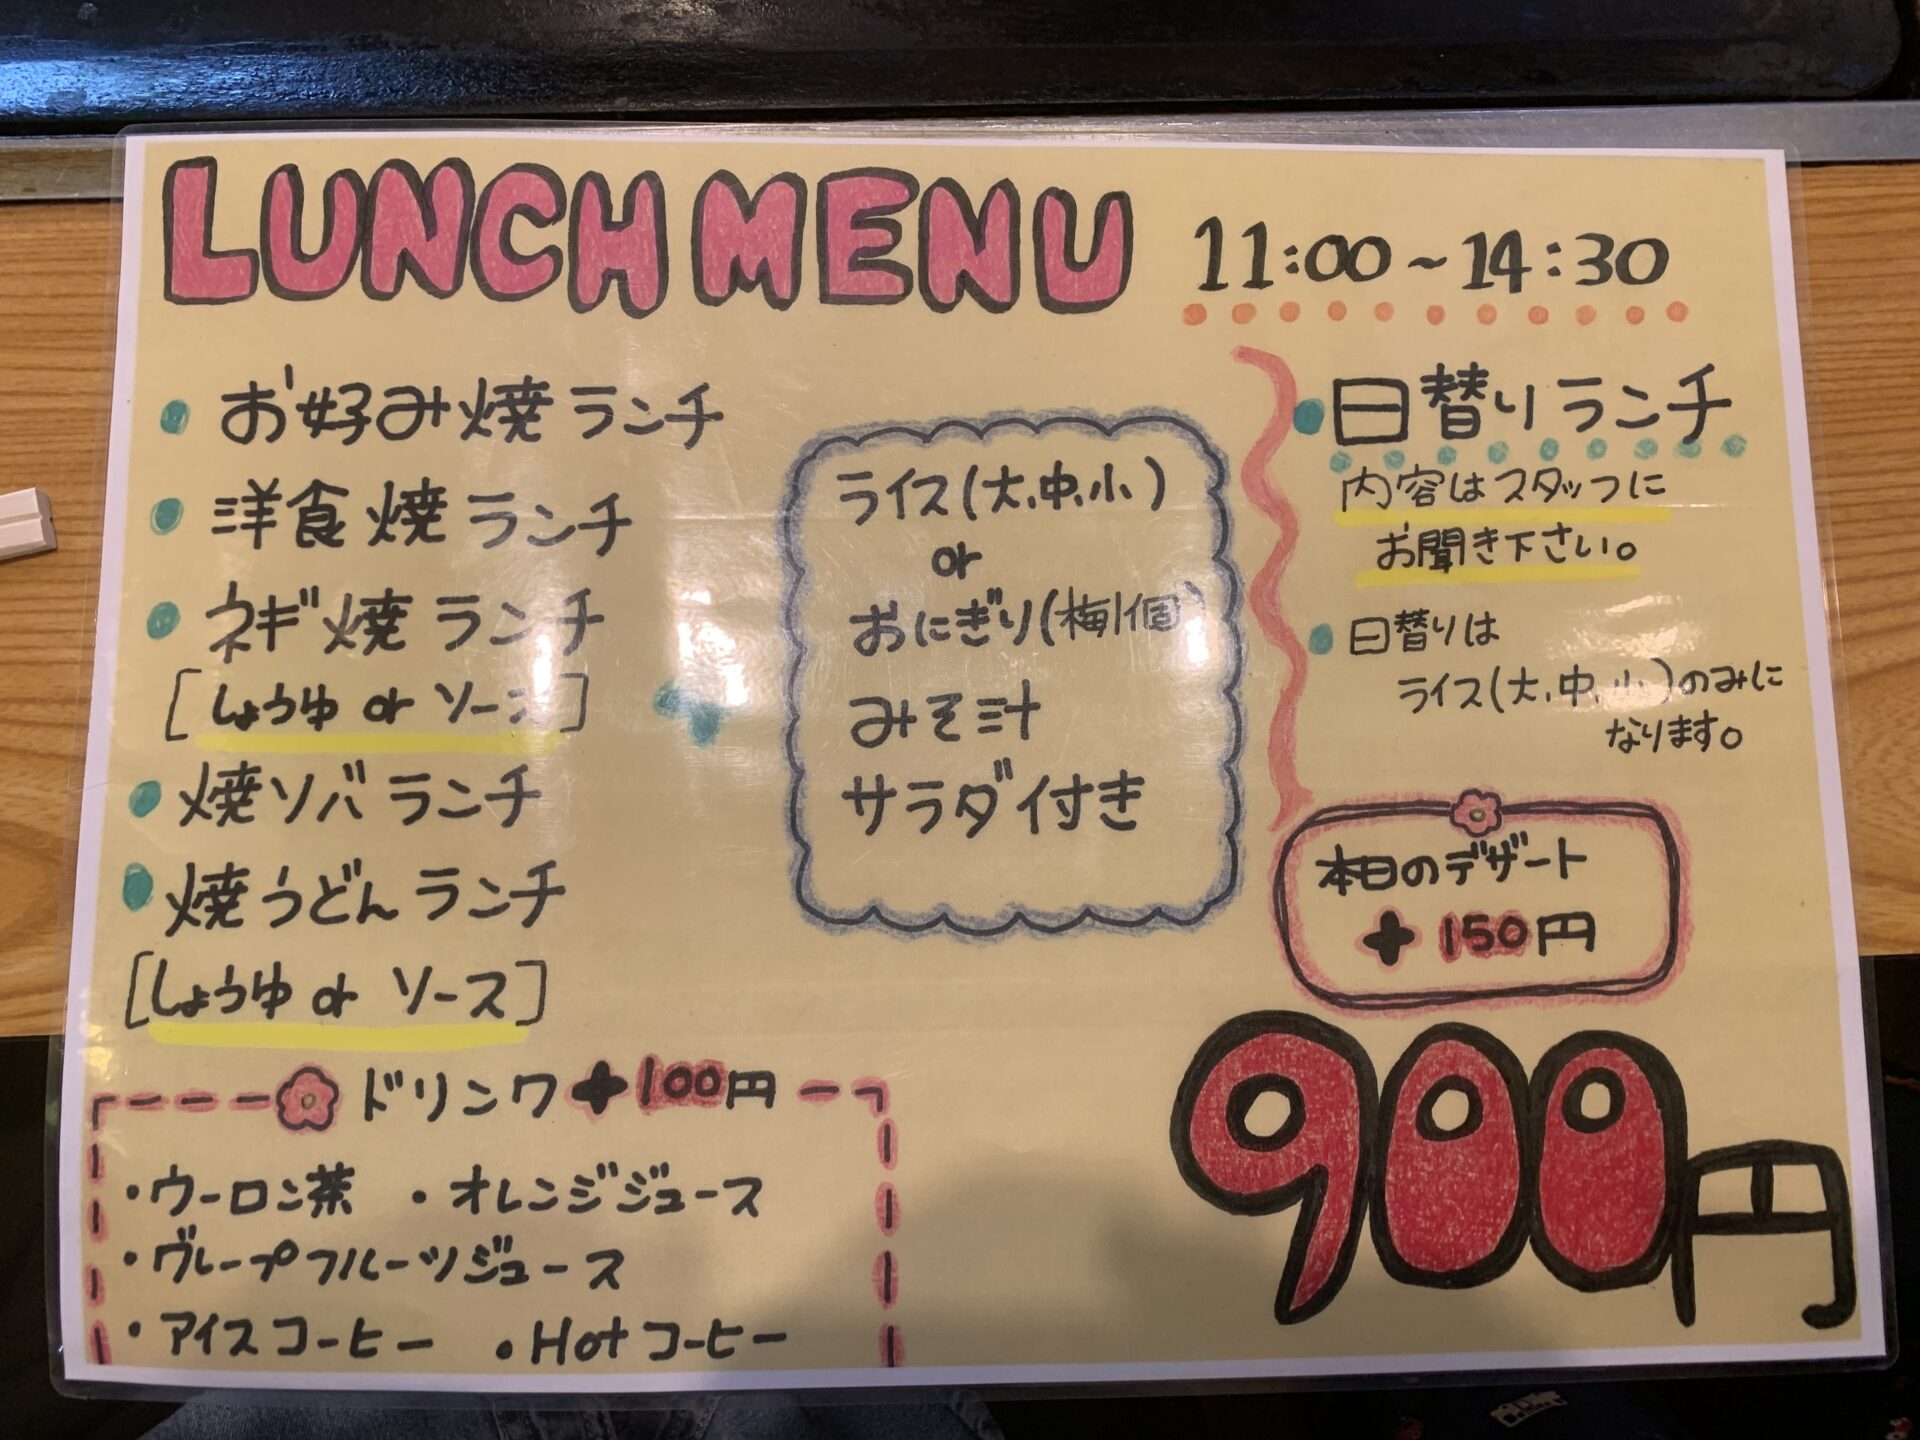 LUNCH MENU
11:00~14:30
・お好み焼ランチ
・洋食焼ランチ
・ネギ焼ランチ
[しょうゆ or ソース]
・焼ソバランチ
・焼うどんランチ
[しょうゆ or ソース]
+
ライス(大、中、小)
or
おにぎり(梅1個)
みそ汁
サラダ付き
・日替りランチ
内容はスタッフに
お聞き下さい。
・日替りは
ライス(大、中、小)のみに
なります。
本日のデザート
+150円
900円
ドリンク+100円
・ウーロン茶 ・オレンジジュース
・グレープフルーツジュース
・アイスコーヒー ・Hotコーヒー